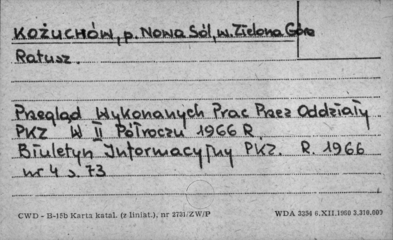 KOŻUCHÓW, p. Nowa Sól, w. Zielona Góra
Ratusz.
Przegląd Wykonanych Prac Przez Oddziały
PKZ W II Półroczu 1966 R.
Biuletyn Informacyjny PKZ. R. 1966
nr 4 s. 73
CWD - B-15b Karta katal. (z liniat.), nr 2731/ZW/P WDA 3234 6.XII.1960 3.310.000